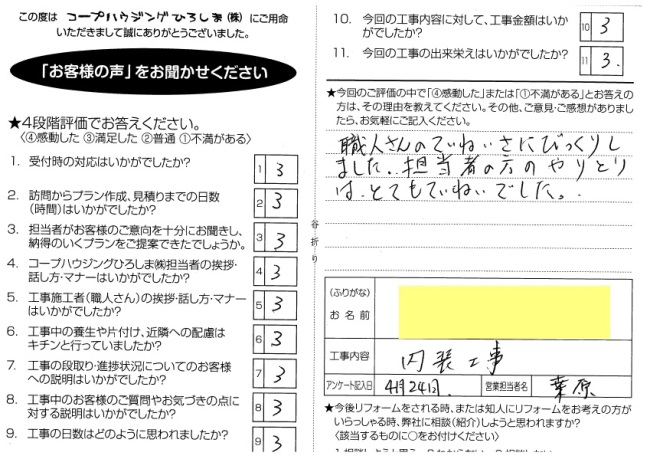 この度は コープハウジングひろしま(株) にご用命
いただきまして誠にありがとうございました。
「お客様の声」をお聞かせください
★4段階評価でお答えください。
〈④感動した ③満足した ②普通 ①不満がある〉
1. 受付時の対応はいかがでしたか？ 1 3
2. 訪問からプラン作成、見積りまでの日数
(時間)はいかがでしたか？ 2 3
3. 担当者がお客様のご意向を十分にお聞きし、
納得のいくプランをご提案できたでしょうか。 3 3
4. コープハウジングひろしま㈱担当者の挨拶・
話し方・マナーはいかがでしたか？ 4 3
5. 工事施工者(職人さん)の挨拶・話し方・マナー
はいかがでしたか？ 5 3
6. 工事中の養生や片付け、近隣への配慮は
キチンと行っていましたか？ 6 3
7. 工事の段取り・進捗状況についてのお客様
への説明はいかがでしたか？ 7 3
8. 工事中のお客様のご質問やお気づきの点に
対する説明はいかがでしたか？ 8 3
9. 工事の日数はどのように思われましたか？ 9 3
谷折り
10. 今回の工事内容に対して、工事金額はいか
がでしたか？ 10 3
11. 今回の工事の出来栄えはいかがでしたか？ 11 3.
★今回のご評価の中で「④感動した」または「①不満がある」とお答えの
方は、その理由を教えてください。その他、ご意見・ご感想がありました
ら、お気軽にご記入ください。
職人さんのていねいさにびっくりし
ました。担当者の方のやりとり
は、とてもていねいでした。
(ふりがな)
お名前
工事内容 内装工事
アンケート記入日 4月24日. 営業担当者名 葉原
★今後リフォームをされる時、または知人にリフォームをお考えの方が
いらっしゃる時、弊社に相談(紹介)しようと思われますか？
〈該当するものに○をお付けください〉